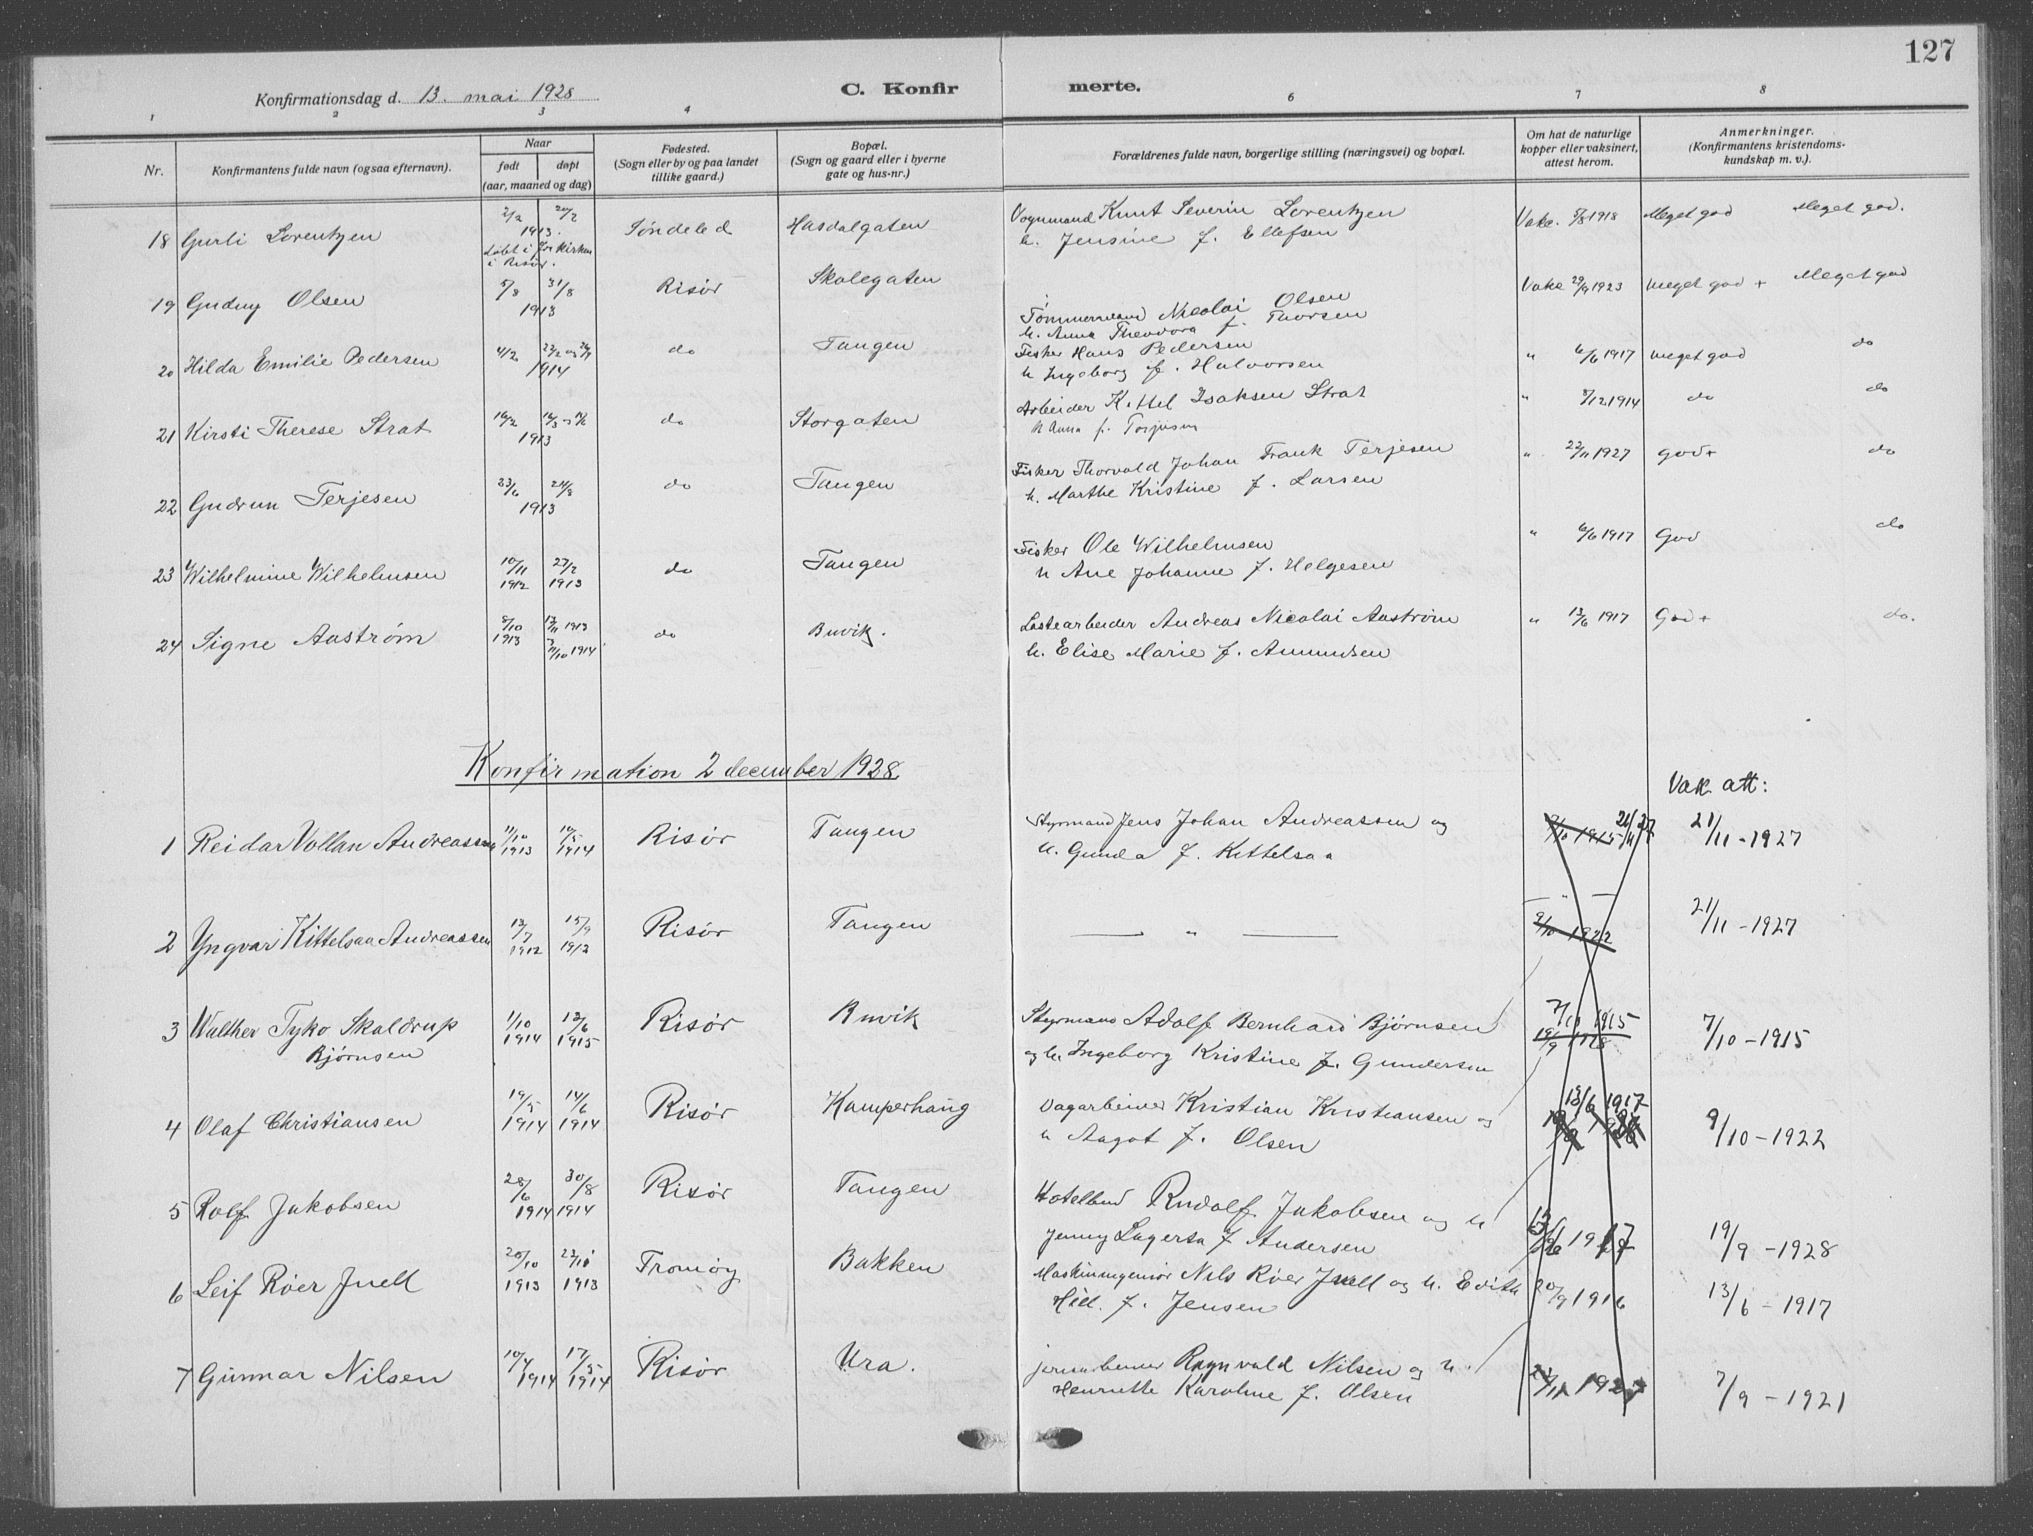 127
Konfirmationsdag d. 13. mai 1928
C. Konfir
merte.
1 2 3 4 6 7 8
Nr.
Konfirmantens fulde navn (ogsaa efternavn).
Naar
født døpt
(aar, maaned og dag)
Fødested.
(Sogn eller by og paa landet
tillike gaard.)
Bopæl.
(Sogn og gaard eller i byerne
gate og hus-nr.)
Forældrenes fulde navn, borgerlige stilling (næringsvei) og bopæl.
Om hat de naturlige
kopper eller vaksinert,
attest herom.
Anmerkninger.
(Konfirmantens kristendoms-
kundskap m. v.)
18 Gurli Lorentzen 2/2 20/2 Søndeled Hasdalgaten Vognmand Knut Severin Lorentzen Vakc. 1918 Meget god Meget god.
1913.
døbt i kirken
i Risør.
h. Jensine f. Ellefsen
19 Gudny Olsen 5/8 31/8 Risør Skolegaten Tømmermand Nicolai Olsen Vakc 29/9 1923 meget god + Meget god
1913
h. Anna Theodora f. Thorsen
20 Hilda Emilie Pedersen 4/2 do Tangen Fisker Hans Pedersen " 6/6 1917 meget god do
1914
h Ingeborg f. Halvorsen
21 Kirsti Therese Strat 16/2 do Storgaten Arbeider Kittel Isaksen Strat " 8/12 1914 do do
1913
h Anna f. Torjusen
22 Gudrun Terjesen 23/6 24/8 do Tangen Fisker Thorvald Johan Frank Terjesen " 22/11 1927 god + do
1913
h. Marthe Kristine f. Larsen
23 Wilhelmine Wilhelmsen 10/11 1912 27/2 1913 do Tangen Fisker Ole Wilhelmsen " 6/6 1917 God do
h Ane Johanne f. Helgesen
24 Signe Aastrøm 8/10 1913 1913 11/10 1914 do Buvik. Lastearbeider Andreas Nicolai Aastrøm " 13/6 1917 God + do.
h. Elise Marie f. Amundsen
Konfirmation 2 december 1928.
Vak. att:
1 Reidar Vollan Andreassen 11/10 1913 10/5 1914 Risør Tangen Styrmand Jens Johan Andreassen og 9/10 1915 21/11 27 21/11 - 1927
h. Gunda f. Kittelsaa
2 Yngvar Kittelsaa Andreassen 13/7 1912 15/9 1912 Risør Tangen — " — 9/10 1922 21/11 - 1927
3 Walther Tyko Skaldrup 1/10 1914 13/6 1915 Risør Buvik Styrmand Adolf Bernhard Bjørnsen 7/10 1915 7/10 - 1915
Bjørnsen
og h. Ingeborg Kristine f. Gundersen 19/9 1928
4 Olaf Christiansen 19/5 1914 14/6 1914 Risør Kamperhaug Kristian Kristiansen og 13/6 1917 9/10 - 1922
h Aagot f. Olsen
5 Rolf Jakobsen 28/6 1914 30/8 1914 Risør Tangen Hotelbud Rudolf Jakobsen og h 1917 19/9 - 1928
Jenny Lagerta f Andersen
6 Leif Röer Juell 20/10 1913 23/10 1913 Tromøy Bakken Maskiningeniør Nils Röer Juell og h. Edith 20/9 1916 13/6 - 1917
Hild. f. Jensen
7 Gunnar Nilsen 10/4 1914 17/5 1914 Risør Ura. Ragnvald Nilsen og h. 7/9 - 1921
Henriette Karoline f. Olsen